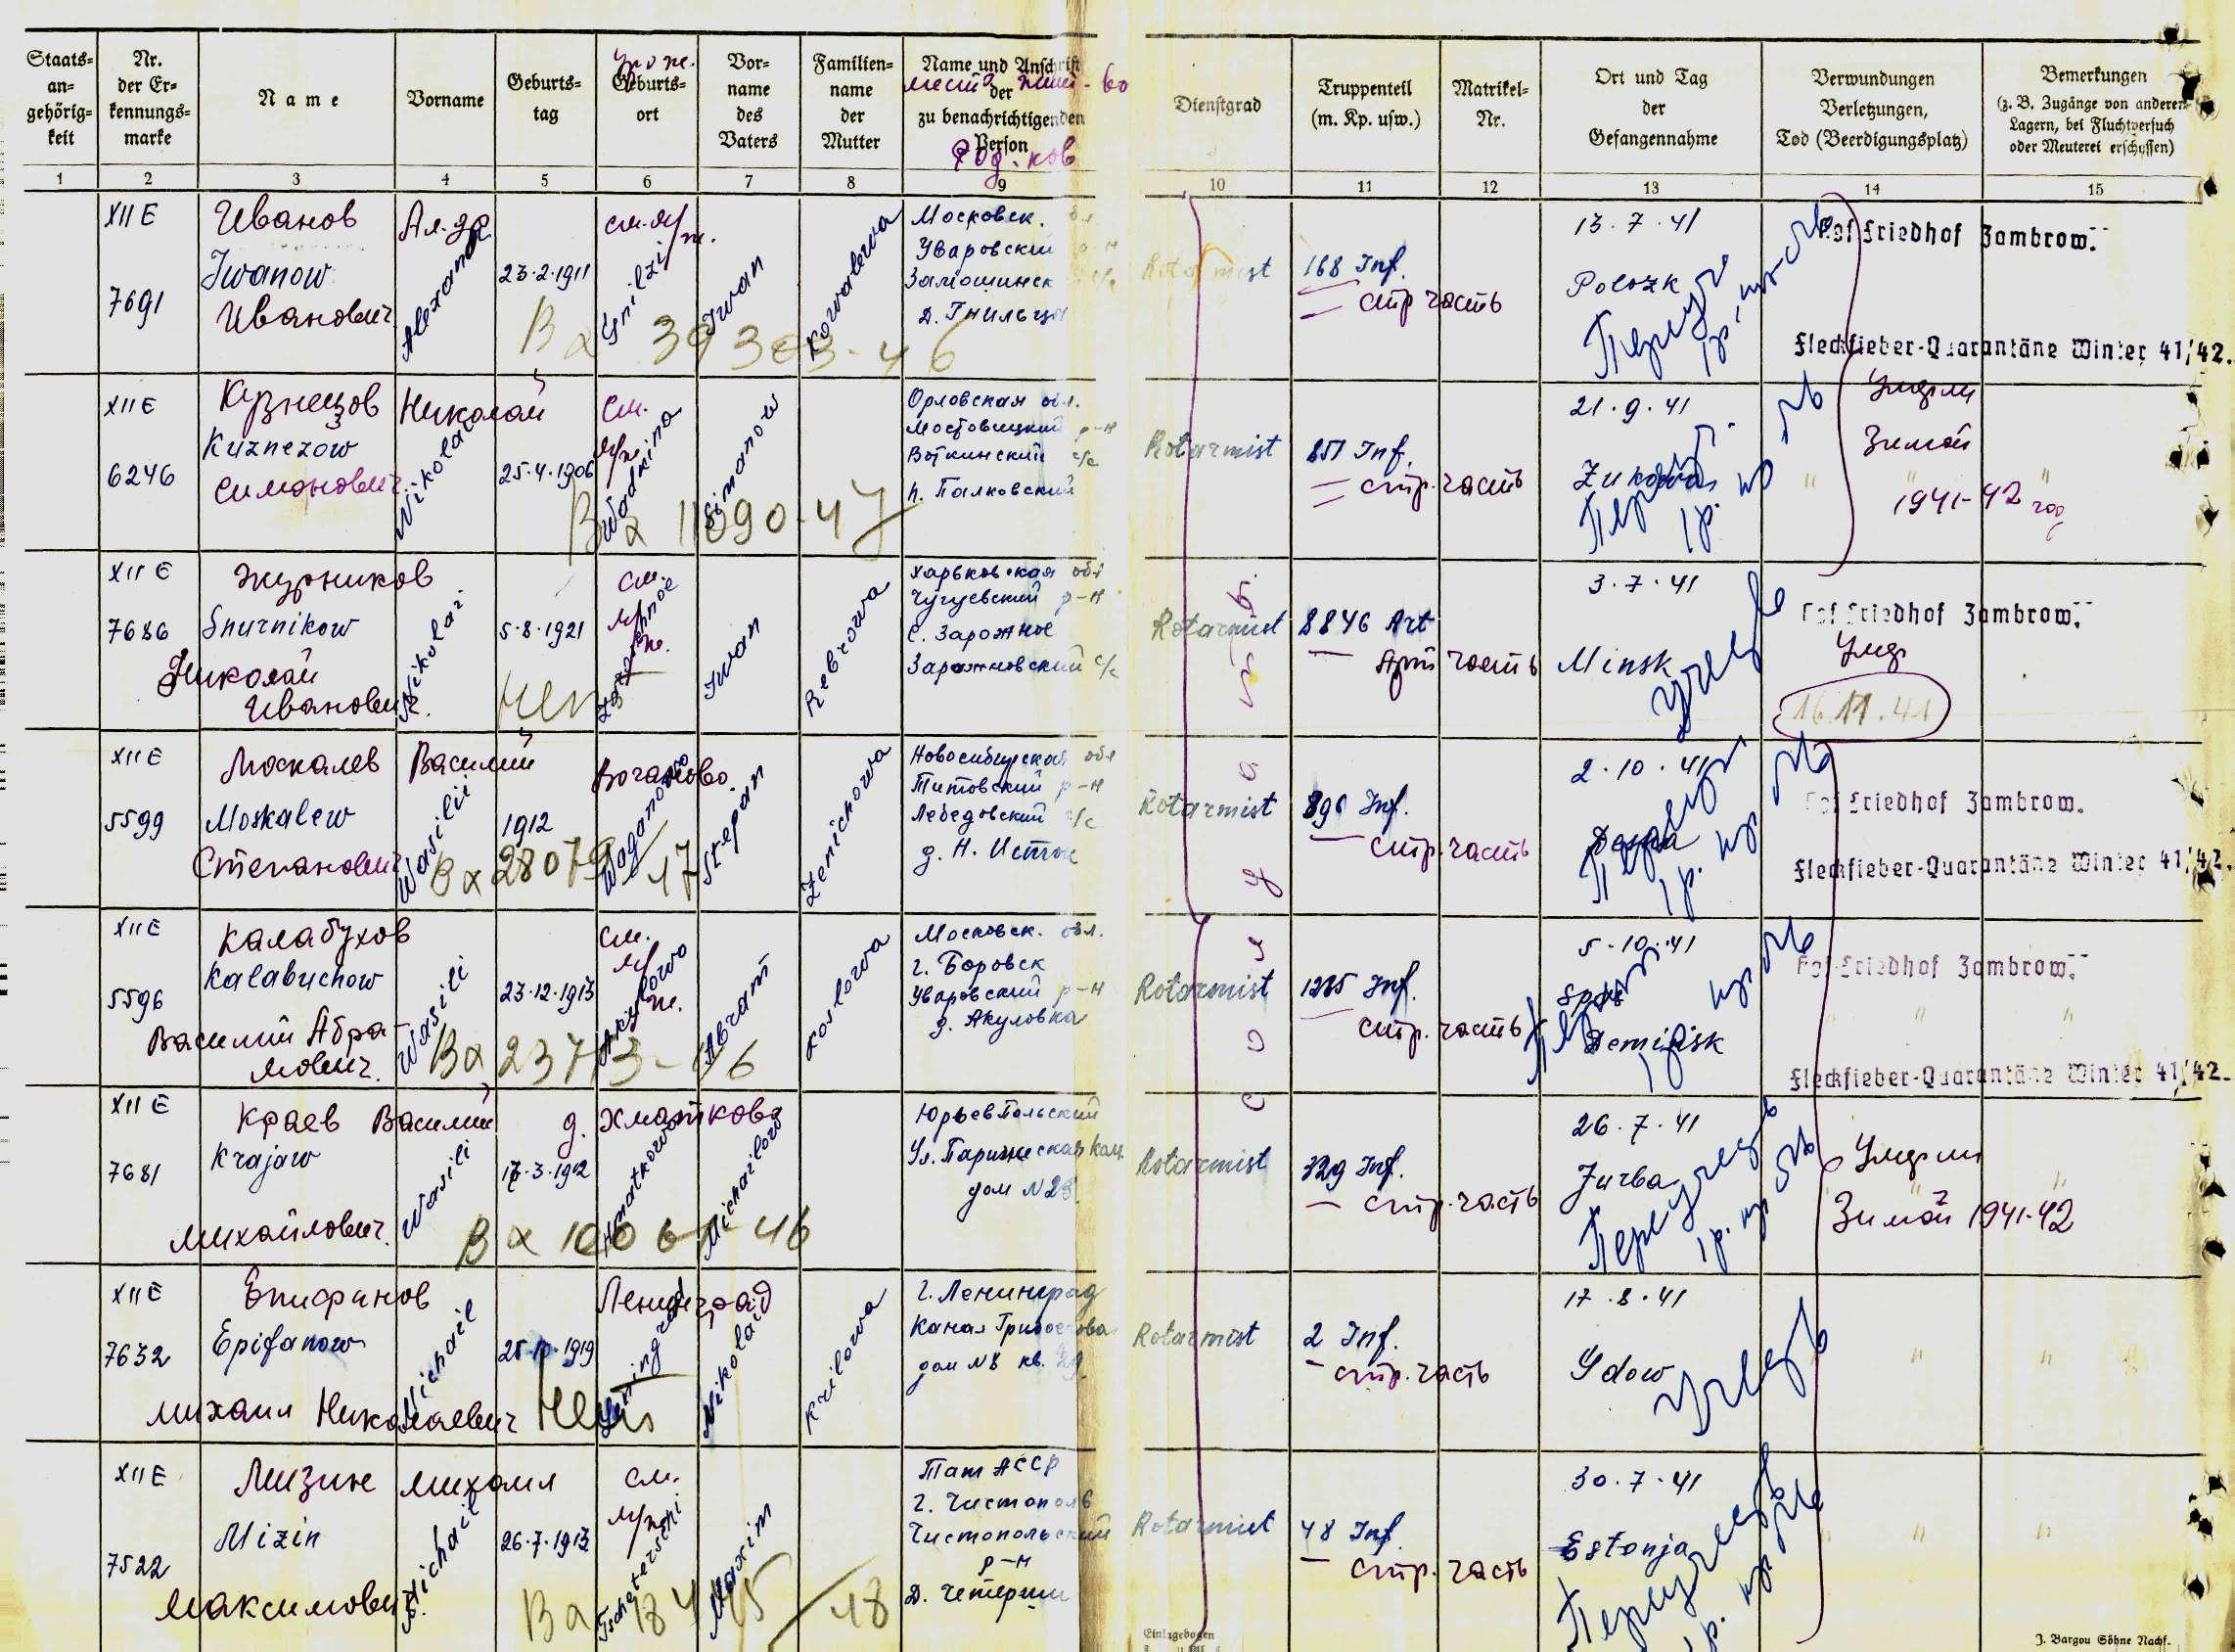 Staats-
an-
gehörig-
keit
Nr.
der Er-
kennungs-
marke
Name
Vorname
Geburts-
tag
Geburts-
ort
Vor-
name
des
Vaters
Familien-
name
der
Mutter
Name und Anschrift
der
zu benachrichtigenden
Person
Dienstgrad
Truppenteil
(m. Kp. usw.)
Matrikel-
Nr.
Ort und Tag
der
Gefangennahme
Verwundungen
Verletzungen,
Tod (Beerdigungsplatz)
Bemerkungen
(z. B. Zugänge von anderen
Lagern, bei Fluchtversuch
oder Meuterei erschossen)
1 2 3 4 5 6 7 8 9 10 11 12 13 14 15
XII E
7691
Иванов
Iwanow
Иванович
Ал-др
Alexander
23.2.1911
см. м/ж.
Gnilzi
Iwan
Kowalewa
Московск. обл
Уваровский р-н
Замошинск с/с
д. Гнильцы
Rotarmist
168 Inf.
стр часть
13.7.41
Polozk
Friedhof Zambrow.
Fleckfieber-Quarantäne Winter 41/42.
XII E
6246
Кузнецов
Kuznezow
Симонович
Николай
Nikolai
25.4.1906
см.
м/ж.
Wodkina
Simanow
Орловская обл.
Воткинский с/с
п. Палковский
Rotarmist
851 Inf.
стр. часть
21.9.41
Умерли
Зимой
1941-42 год
XII E
7686
Журников
Snurnikow
Николай
Иванович
Nikolai
5.8.1921
см.
м/ж.
Iwan
Rebrowa
Харьковская обл
Чугуевский р-н
с. Зарожное
Зарожновский с/с
Rotarmist
8846 Art
Арт часть
3.7.41
Minsk
Friedhof Zambrow.
Умер
16.11.41
XII E
5599
Москалев
Moskalew
Степанович
Василий
Wasilii
1912
Ваганово
Waganowo
Stepan
Zenichowa
Новосибирская обл
Титовский р-н
Лебедовский с/с
д. Н. Исток
Rotarmist
896 Inf.
стр. часть
2.10.41
Friedhof Zambrow.
Fleckfieber-Quarantäne Winter 41/42.
XII E
5596
Калабухов
Kalabuchow
Василий Абра-
мович.
Wasili
23.12.1913
см.
м/ж.
Akulowo
Abram
Koslowa
Московск. обл.
г. Боровск
Уваровский р-н
д. Акуловка
Rotarmist
1285 Inf.
стр. часть
5.10.41
Spas
Deminsk
Friedhof Zambrow.
Fleckfieber-Quarantäne Winter 41/42.
XII E
7681
Краев Василий
Krajaw
Михайлович.
Wasili
17.3.1912
д. Хматково
Hmatkowo
Michailow
Юрьев Польский
Ул. Парижская ком
дом N 28
Rotarmist
329 Inf.
стр. часть
26.7.41
Jurba
Умерли
Зимой 1941-42
XII E
7632
Епифанов
Epifanow
Михаил Николаевич
Michail
25.10.1919
Ленинград
Leningrad
Nikolaid
Krilowa
г. Ленинград
Канал Грибоедова
дом N 8 кв.
Rotarmist
2 Inf.
стр. часть
17.8.41
Gdow
XII E
7522
Мизин Михаил
Mizin
Максимович
Michail
26.7.1913
см.
м/ж.
Maxim
Тат АССР
г. Чистополь
Чистопольский
р-н
Rotarmist
48 Inf.
стр. часть
30.7.41
Estonja
J. Bargou Söhne Nachf.